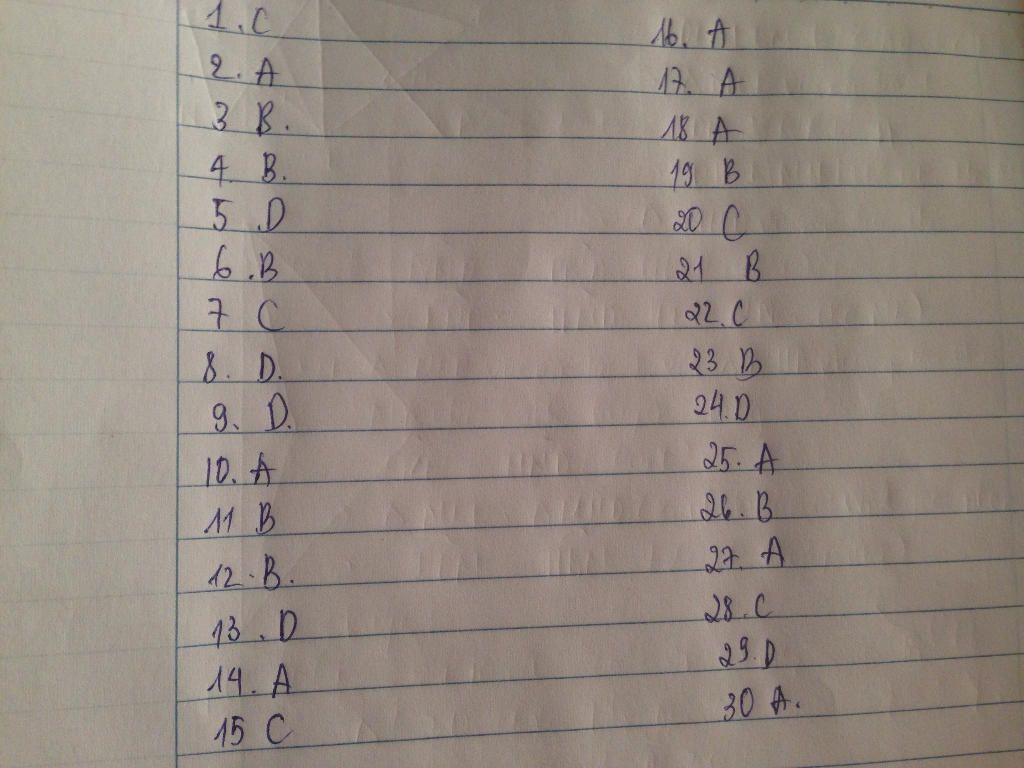 1. C
2. A
3 B.
4 B.
5 D
6 .B
7 C
8. D.
9. D.
10. A
11 B
12. B.
13 . D
14. A
15 C
16. A
17. A
18 A
19 B
20 C
21 B
22. C
23 B
24. D
25. A
26. B
27. A
28. C
29. D
30 A.